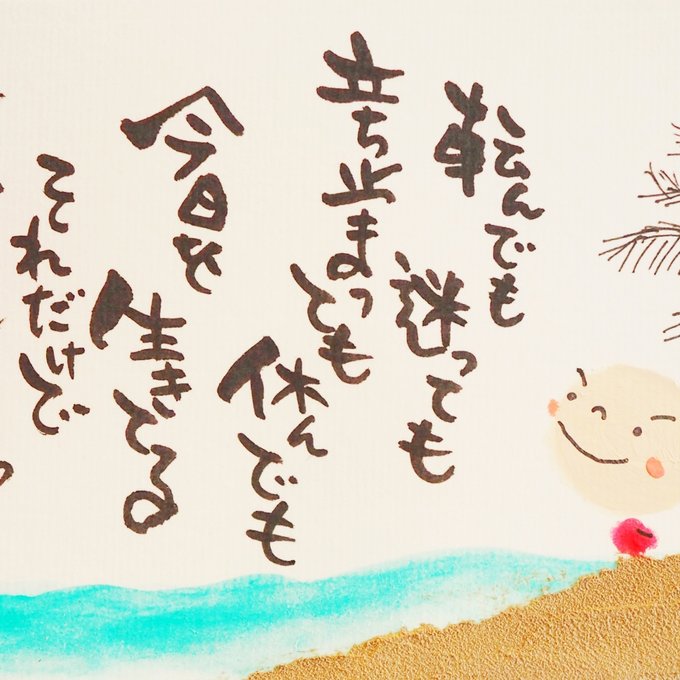 転んでも
迷っても
立ち止まっても
休んでも
今日を
生きてる
それだけで